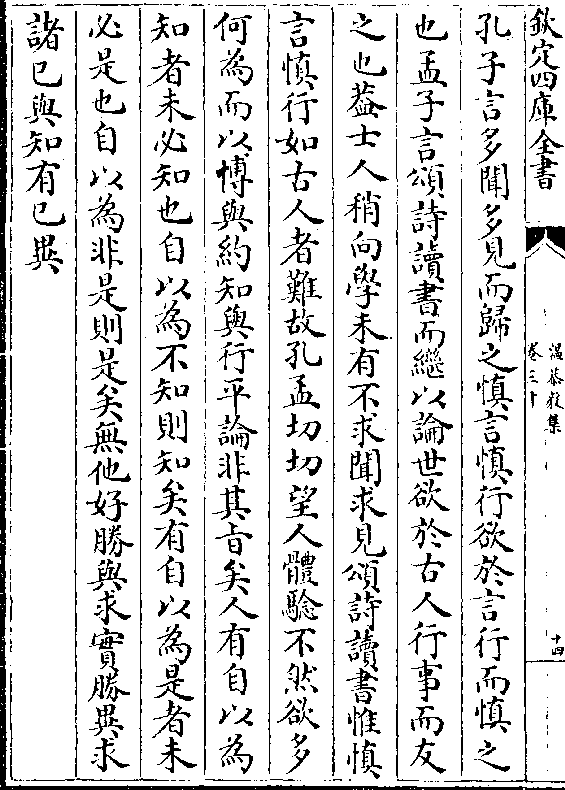 欽定四庫全書
溫恭毅集
卷三十
十四
孔子言多聞多見而歸之慎言慎行欲於言行而慎之
也孟子言頌詩讀書而繼以論世欲於古人行事而友
之也葢士人稍向學未有不求聞求見頌詩讀書惟慎
言慎行如古人者難故孔孟切切望人體驗不然欲多
何為而以博與約知與行平論非其旨矣人有自以為
知者未必知也自以為不知則知矣有自以為是者未
必是也自以為非是則是矣無他好勝與求實勝異求
諸已與知有已異